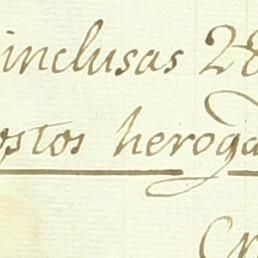 inclusas 28
ostos heroga
Cr